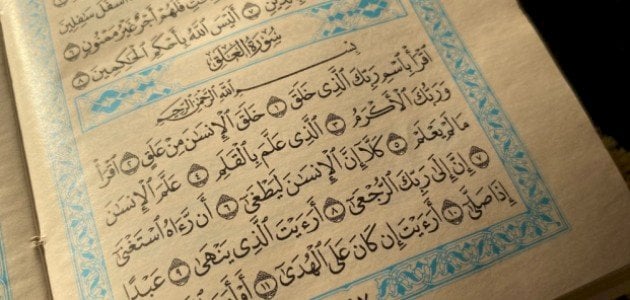 أَسْفَلَ سَٰفِلِينَ
فَلَهُمْ أَجْرٌ غَيْرُ مَمْنُونٍ ٦
أَلَيْسَ ٱللَّهُ بِأَحْكَمِ ٱلْحَٰكِمِينَ ٨
سُورَةُ الْعَلَقِ
بِسْمِ ٱللَّهِ ٱلرَّحْمَٰنِ ٱلرَّحِيمِ
ٱقْرَأْ بِٱسْمِ رَبِّكَ ٱلَّذِى خَلَقَ ١ خَلَقَ ٱلْإِنسَٰنَ مِنْ عَلَقٍ ٢ ٱقْرَأْ
وَرَبُّكَ ٱلْأَكْرَمُ ٣ ٱلَّذِى عَلَّمَ بِٱلْقَلَمِ ٤ عَلَّمَ ٱلْإِنسَٰنَ
مَا لَمْ يَعْلَمْ ٥ كَلَّآ إِنَّ ٱلْإِنسَٰنَ لَيَطْغَىٰٓ ٦ أَن رَّءَاهُ ٱسْتَغْنَىٰٓ
٧ إِنَّ إِلَىٰ رَبِّكَ ٱلرُّجْعَىٰٓ ٨ أَرَءَيْتَ ٱلَّذِى يَنْهَىٰ ٩ عَبْدًا
إِذَا صَلَّىٰٓ ١٠ أَرَءَيْتَ إِن كَانَ عَلَى ٱلْهُدَىٰٓ ١١ أَوْ أَمَرَ